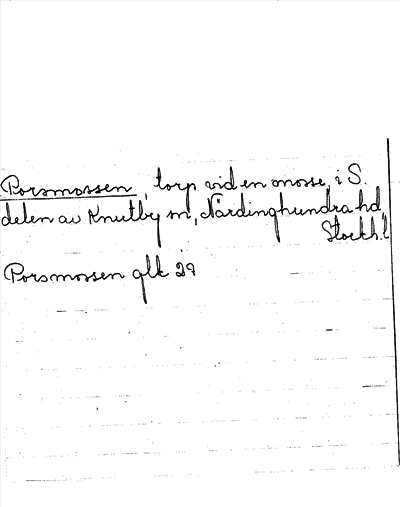 Porsmossen, torp vid en mosse, i S.
delen av Knutby sn, Närdinghundra hd,
Stockh. l
Porsmossen glk 29